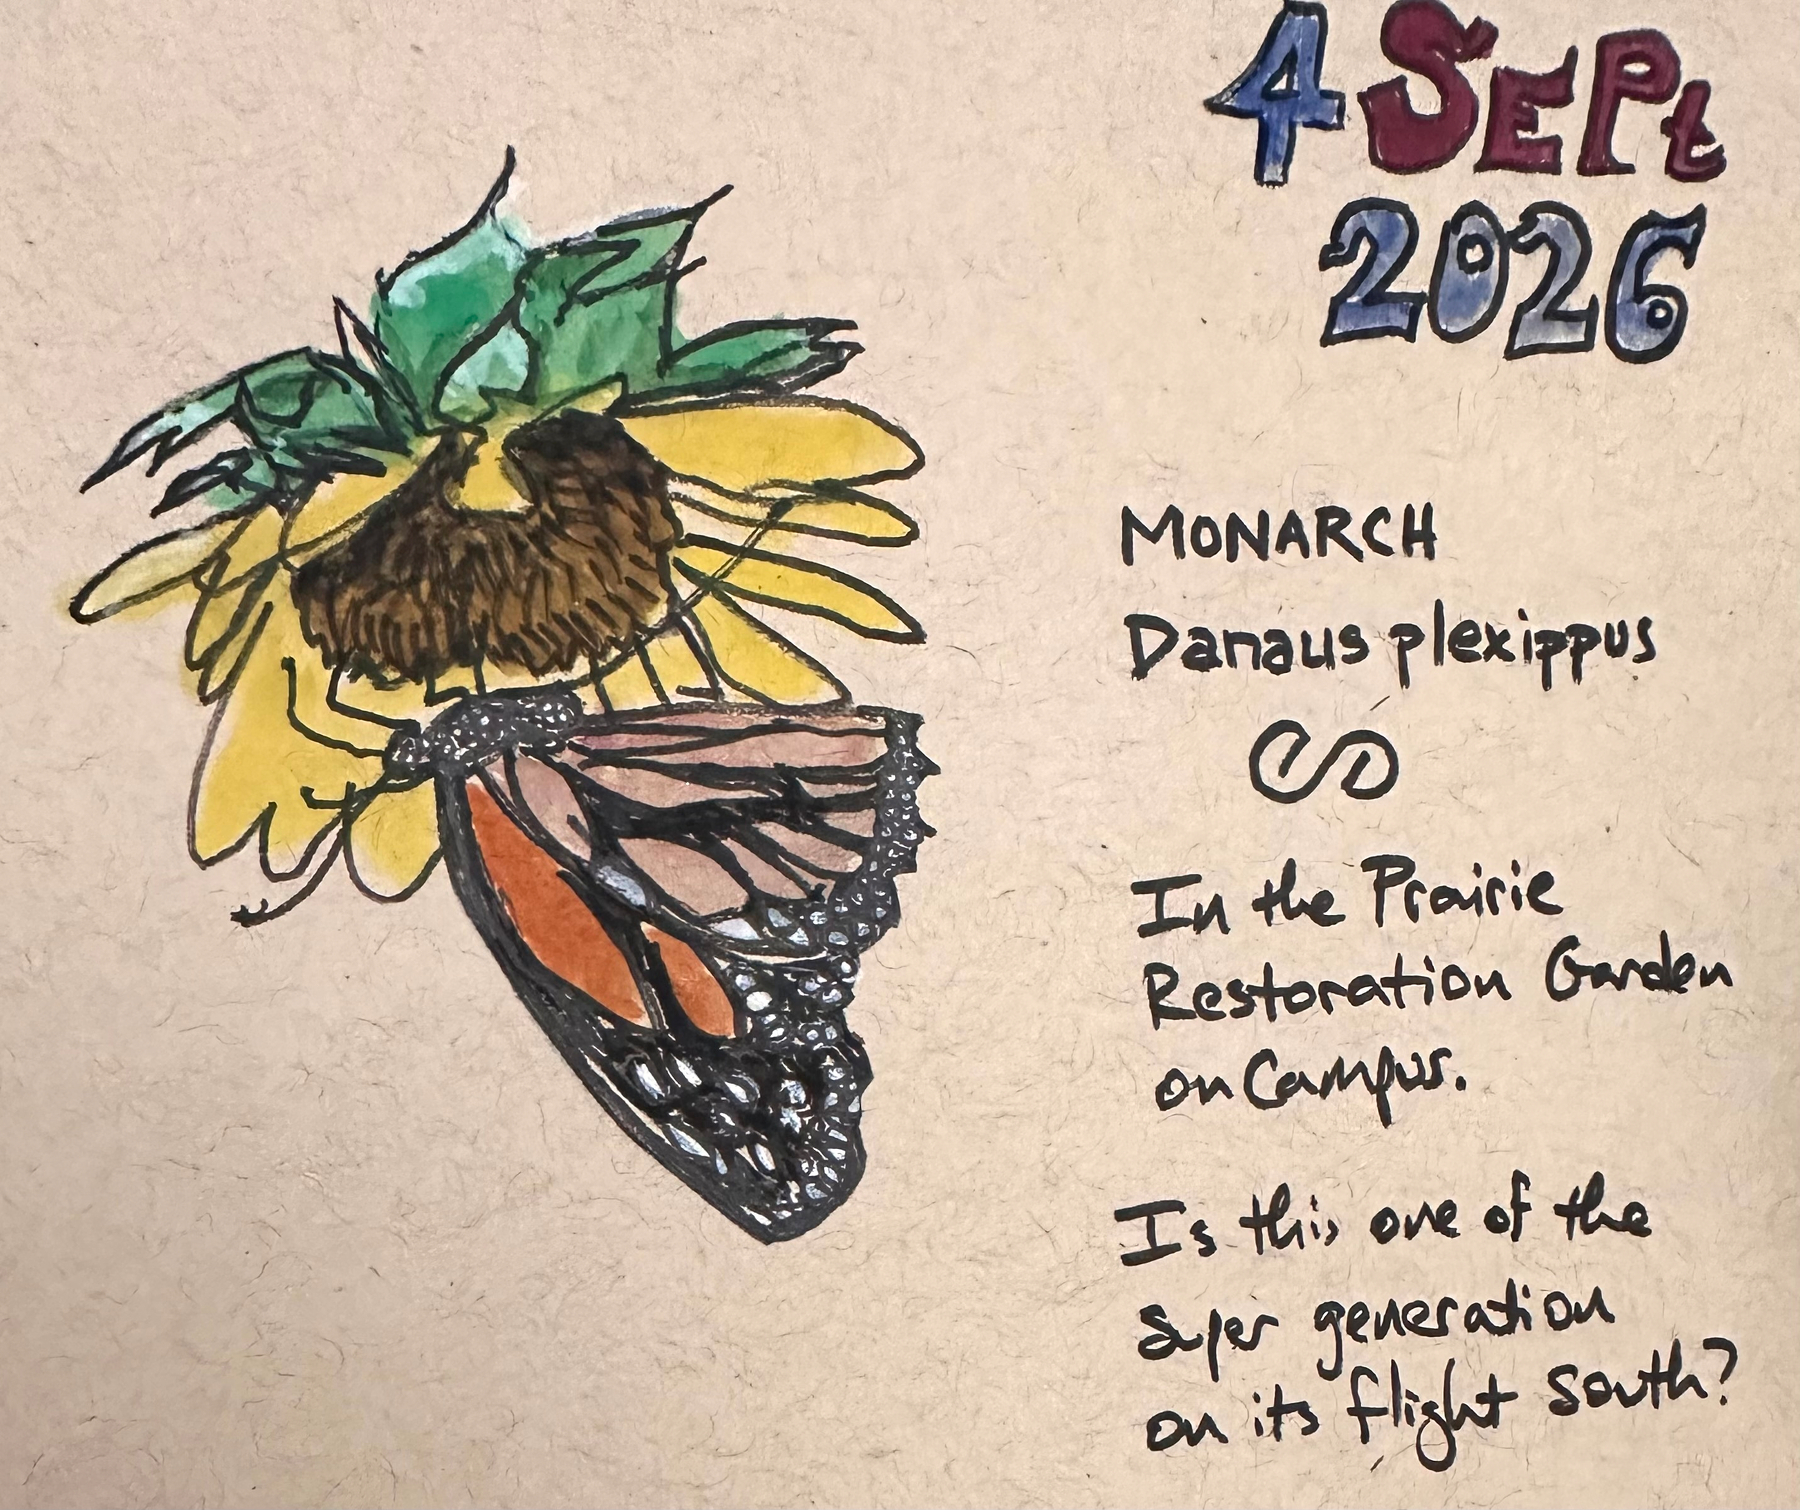 4 SEPt
2026
MONARCH
Danaus plexippus
In the Prairie
Restoration Garden
on Campus.
Is this one of the
super generation
on its flight south?